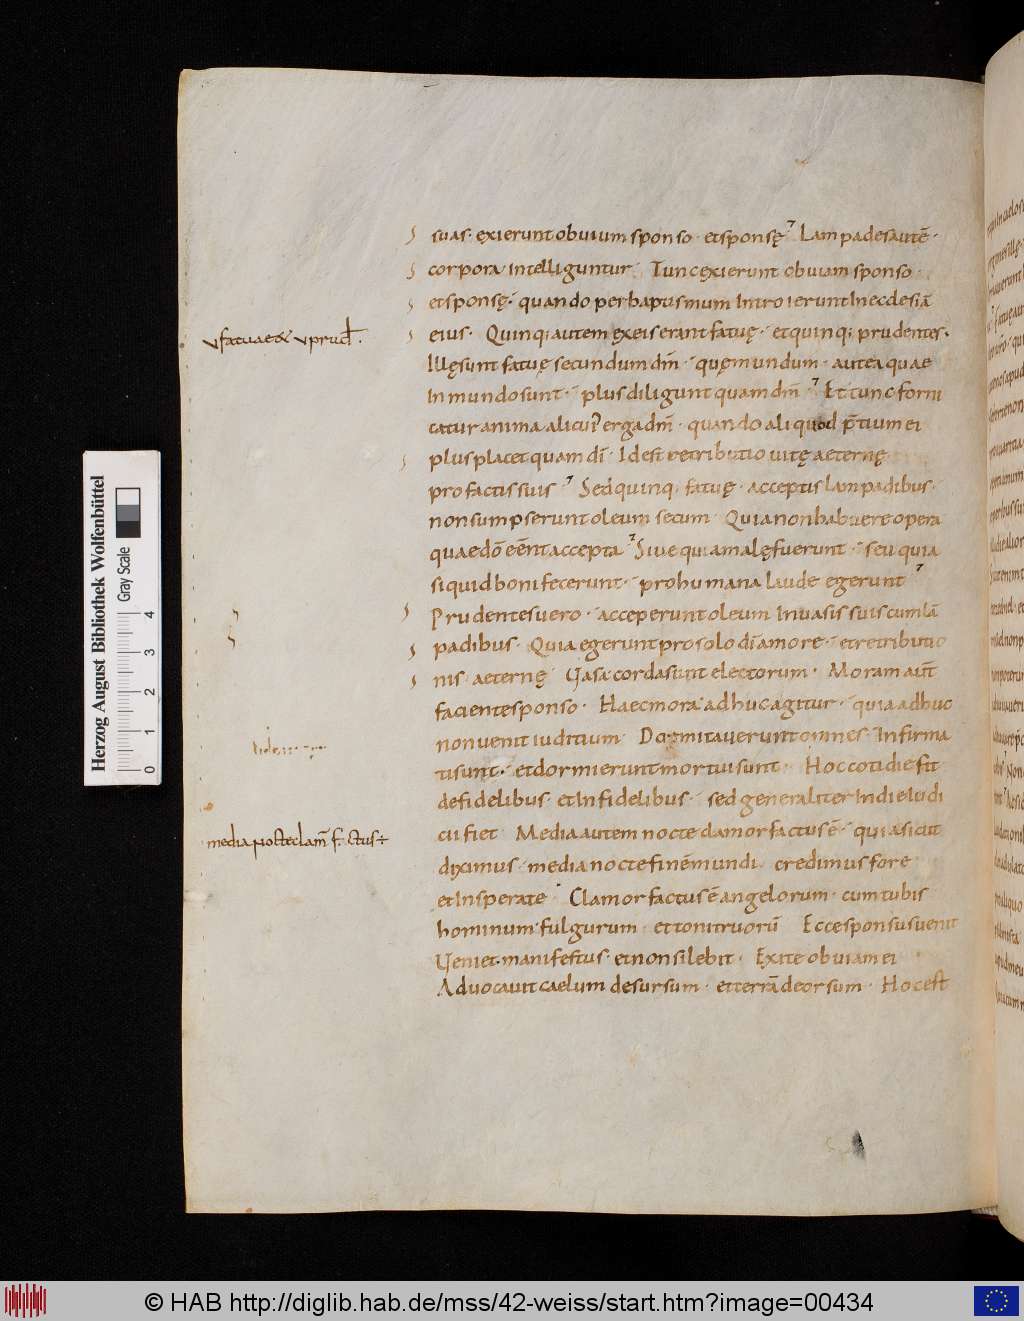 suas· exierunt obuium sponso· et sponsę⁊ Lampades autē·
corpora intelliguntur· Tunc exierunt obuiam sponso·
et sponsę· quando per baptismum Introierunt In ecclesiā
eius· Quinq; autem ęx eis erant fatuę· et quinq; prudentes·
Illę sunt fatuę secundum dm̄· quę mundum· aut ea quae
In mundo sunt·· plus diligunt quam dm̄·⁊ Et tunc forni
catur anima alicui' erga dm̄· quando aliquod p̄tium ei
v fatuae & v prud.
plus placet quam dī· Id est retributio uitę aeternę
pro factis suis·⁊ Sed quinq; fatuę· acceptis lampadibus·
non sumpserunt oleum secum· Quia non habuere opera
quae dō eēnt accepta⁊ Siue quia malę fuerunt·· seu quia
si quid boni fecerunt·· pro humana laude egerunt⁊
Prudentes uero·· acceperunt oleum In uasis suis cum lā
padibus· Quia egerunt pro solo dī amore·· et retributio
nis· aeternę· Uasa corda sunt electorum· Moram aūt
faciente sponso· Haec mora· adhuc agitur·· quia adhuc
non uenit iuditium· Dormitauerunt omnes· Infirma
ti sunt· et dormierunt mortui sunt· Hoc cotidie fit
de fidelibus· et Infidelibus· sed generaliter In die iudi
cii fiet· Media autem nocte clamor factus ē·· quia sicut
media nocte clam̄ f. ctus ÷
diximus· media nocte finē mundi credimus fore
et Insperate· Clamor factus ē angelorum· cum tubis
hominum· fulgurum· et tonitruorū Ecce sponsus uenit
Ueniet· manifestus· et non silebit· Exite obuiam ei
Aduocauit caelum desursum· et terrā deorsum· Hoc est
Herzog August Bibliothek Wolfenbüttel
Gray Scale
0 1 2 3 4
© HAB http://diglib.hab.de/mss/42-weiss/start.htm?image=00434